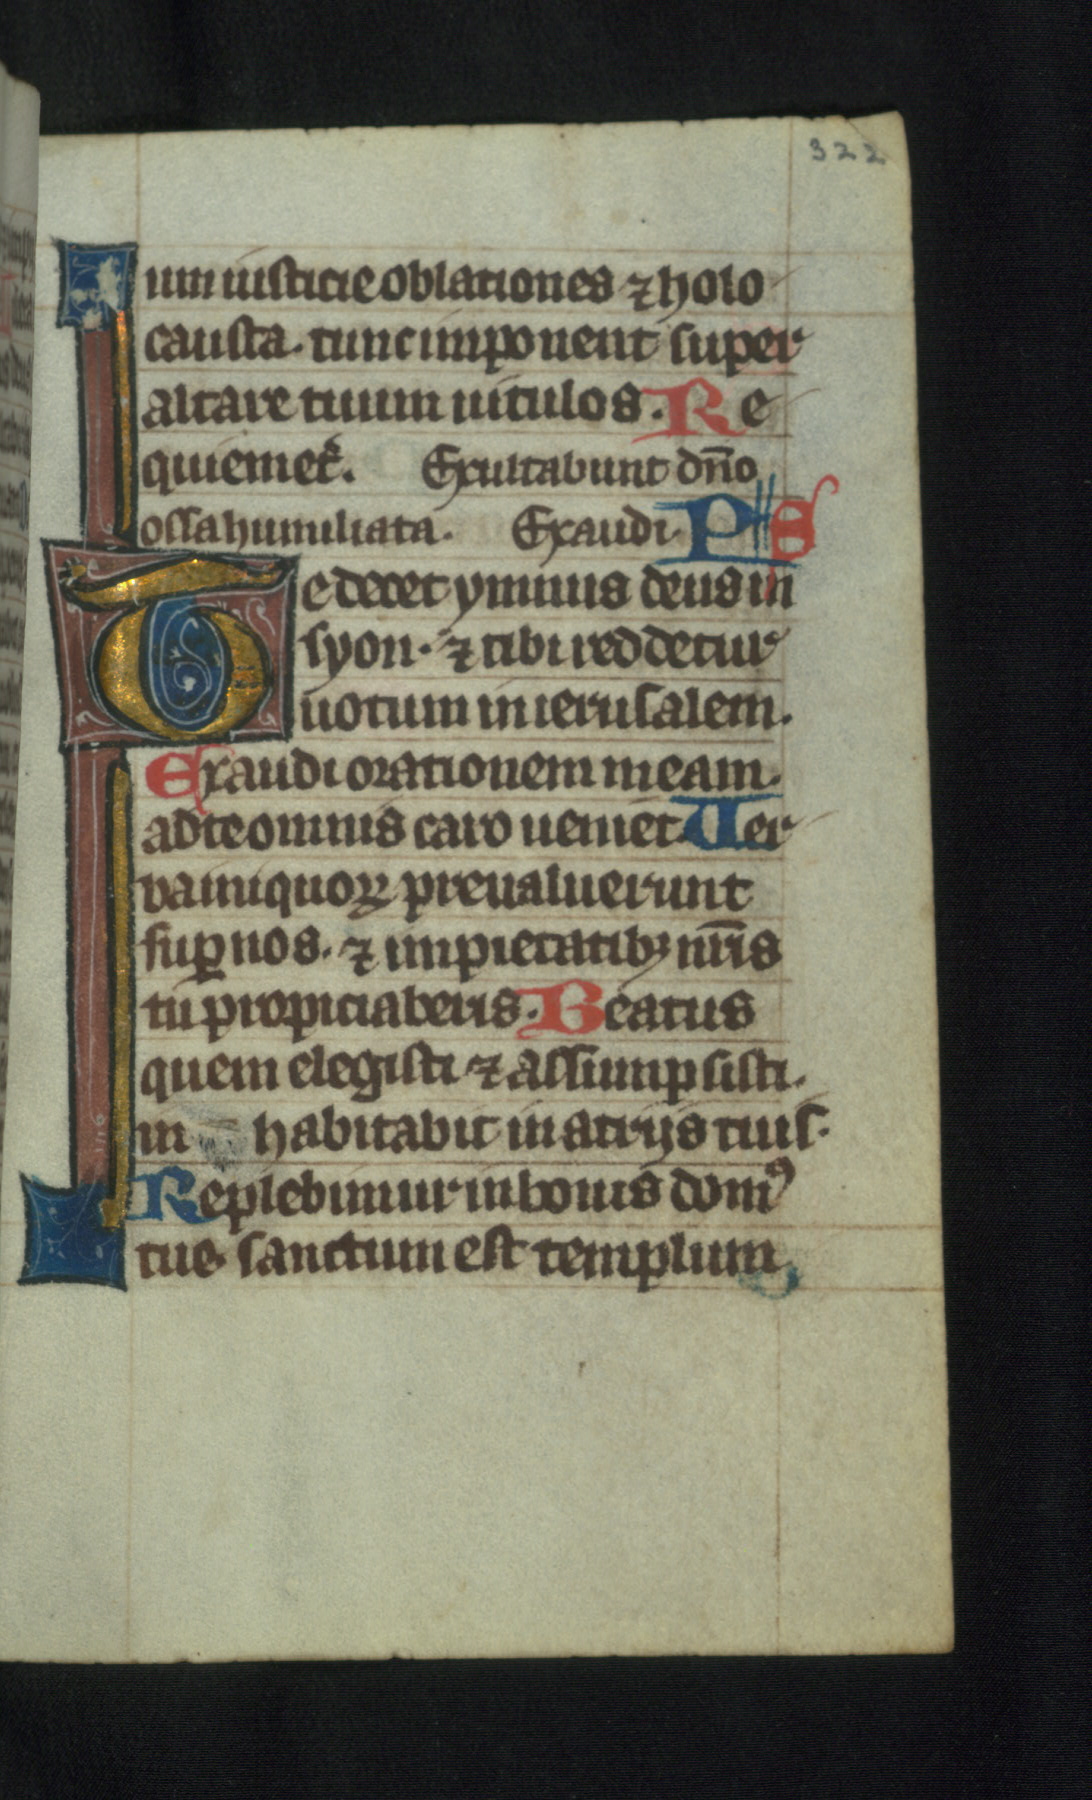 322
um iusticie oblationes ⁊ holo
causta. tunc imponent super
altare tuum uitulos. Re
quiem et̾. Exultabunt dn̄o
ossa humiliata. Exaudi. PS
Te decet ymnus deus in
syon. ⁊ tibi reddetur
uotum in ierusalem.
Exaudi orationem meam.
ad te omnis caro ueniet. Uer
ba iniquoꝝ preualuerunt
suꝑ nos. ⁊ impietatibꝫ nr̄is
tu propiciaberis. Beatus
quem elegisti ⁊ assumpsisti.
in habitabit in atrijs tuis.
Replebimur in bonis domꝰ
tue. sanctum est templum